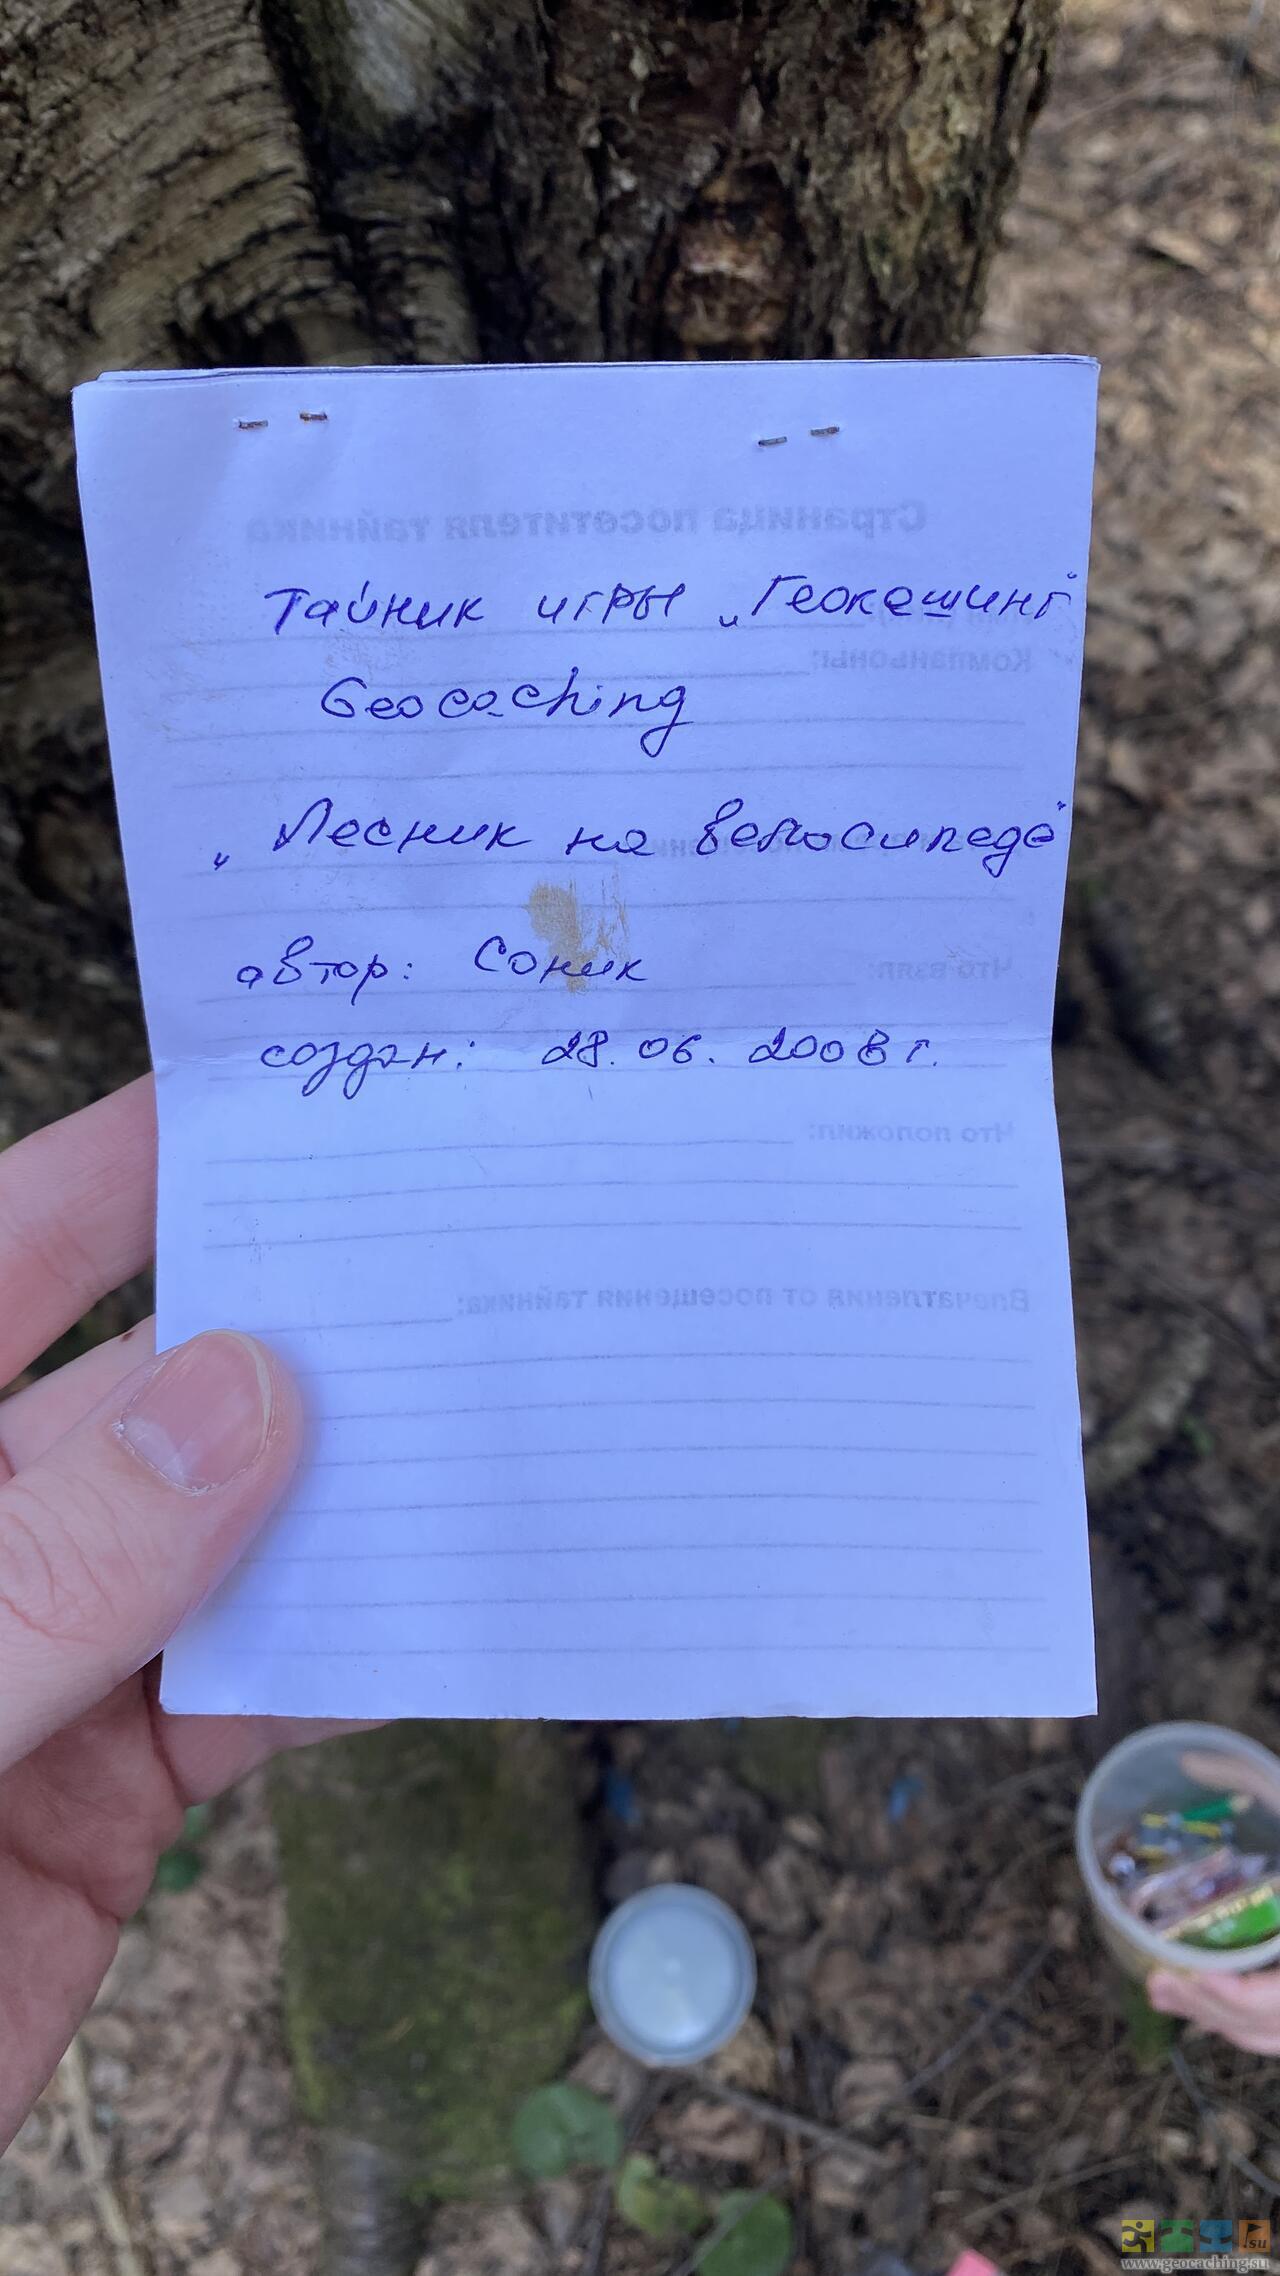 Страница посетителя тайника
Тайник игры „Геокешинг"
Компаньоны:
Geocaching
„Лесник на велосипеде"
Что взял:
автор: Соник
создан: 28.06.2008 г.
Что положил:
Впечатления от посещения тайника:
.su
www.geocaching.su